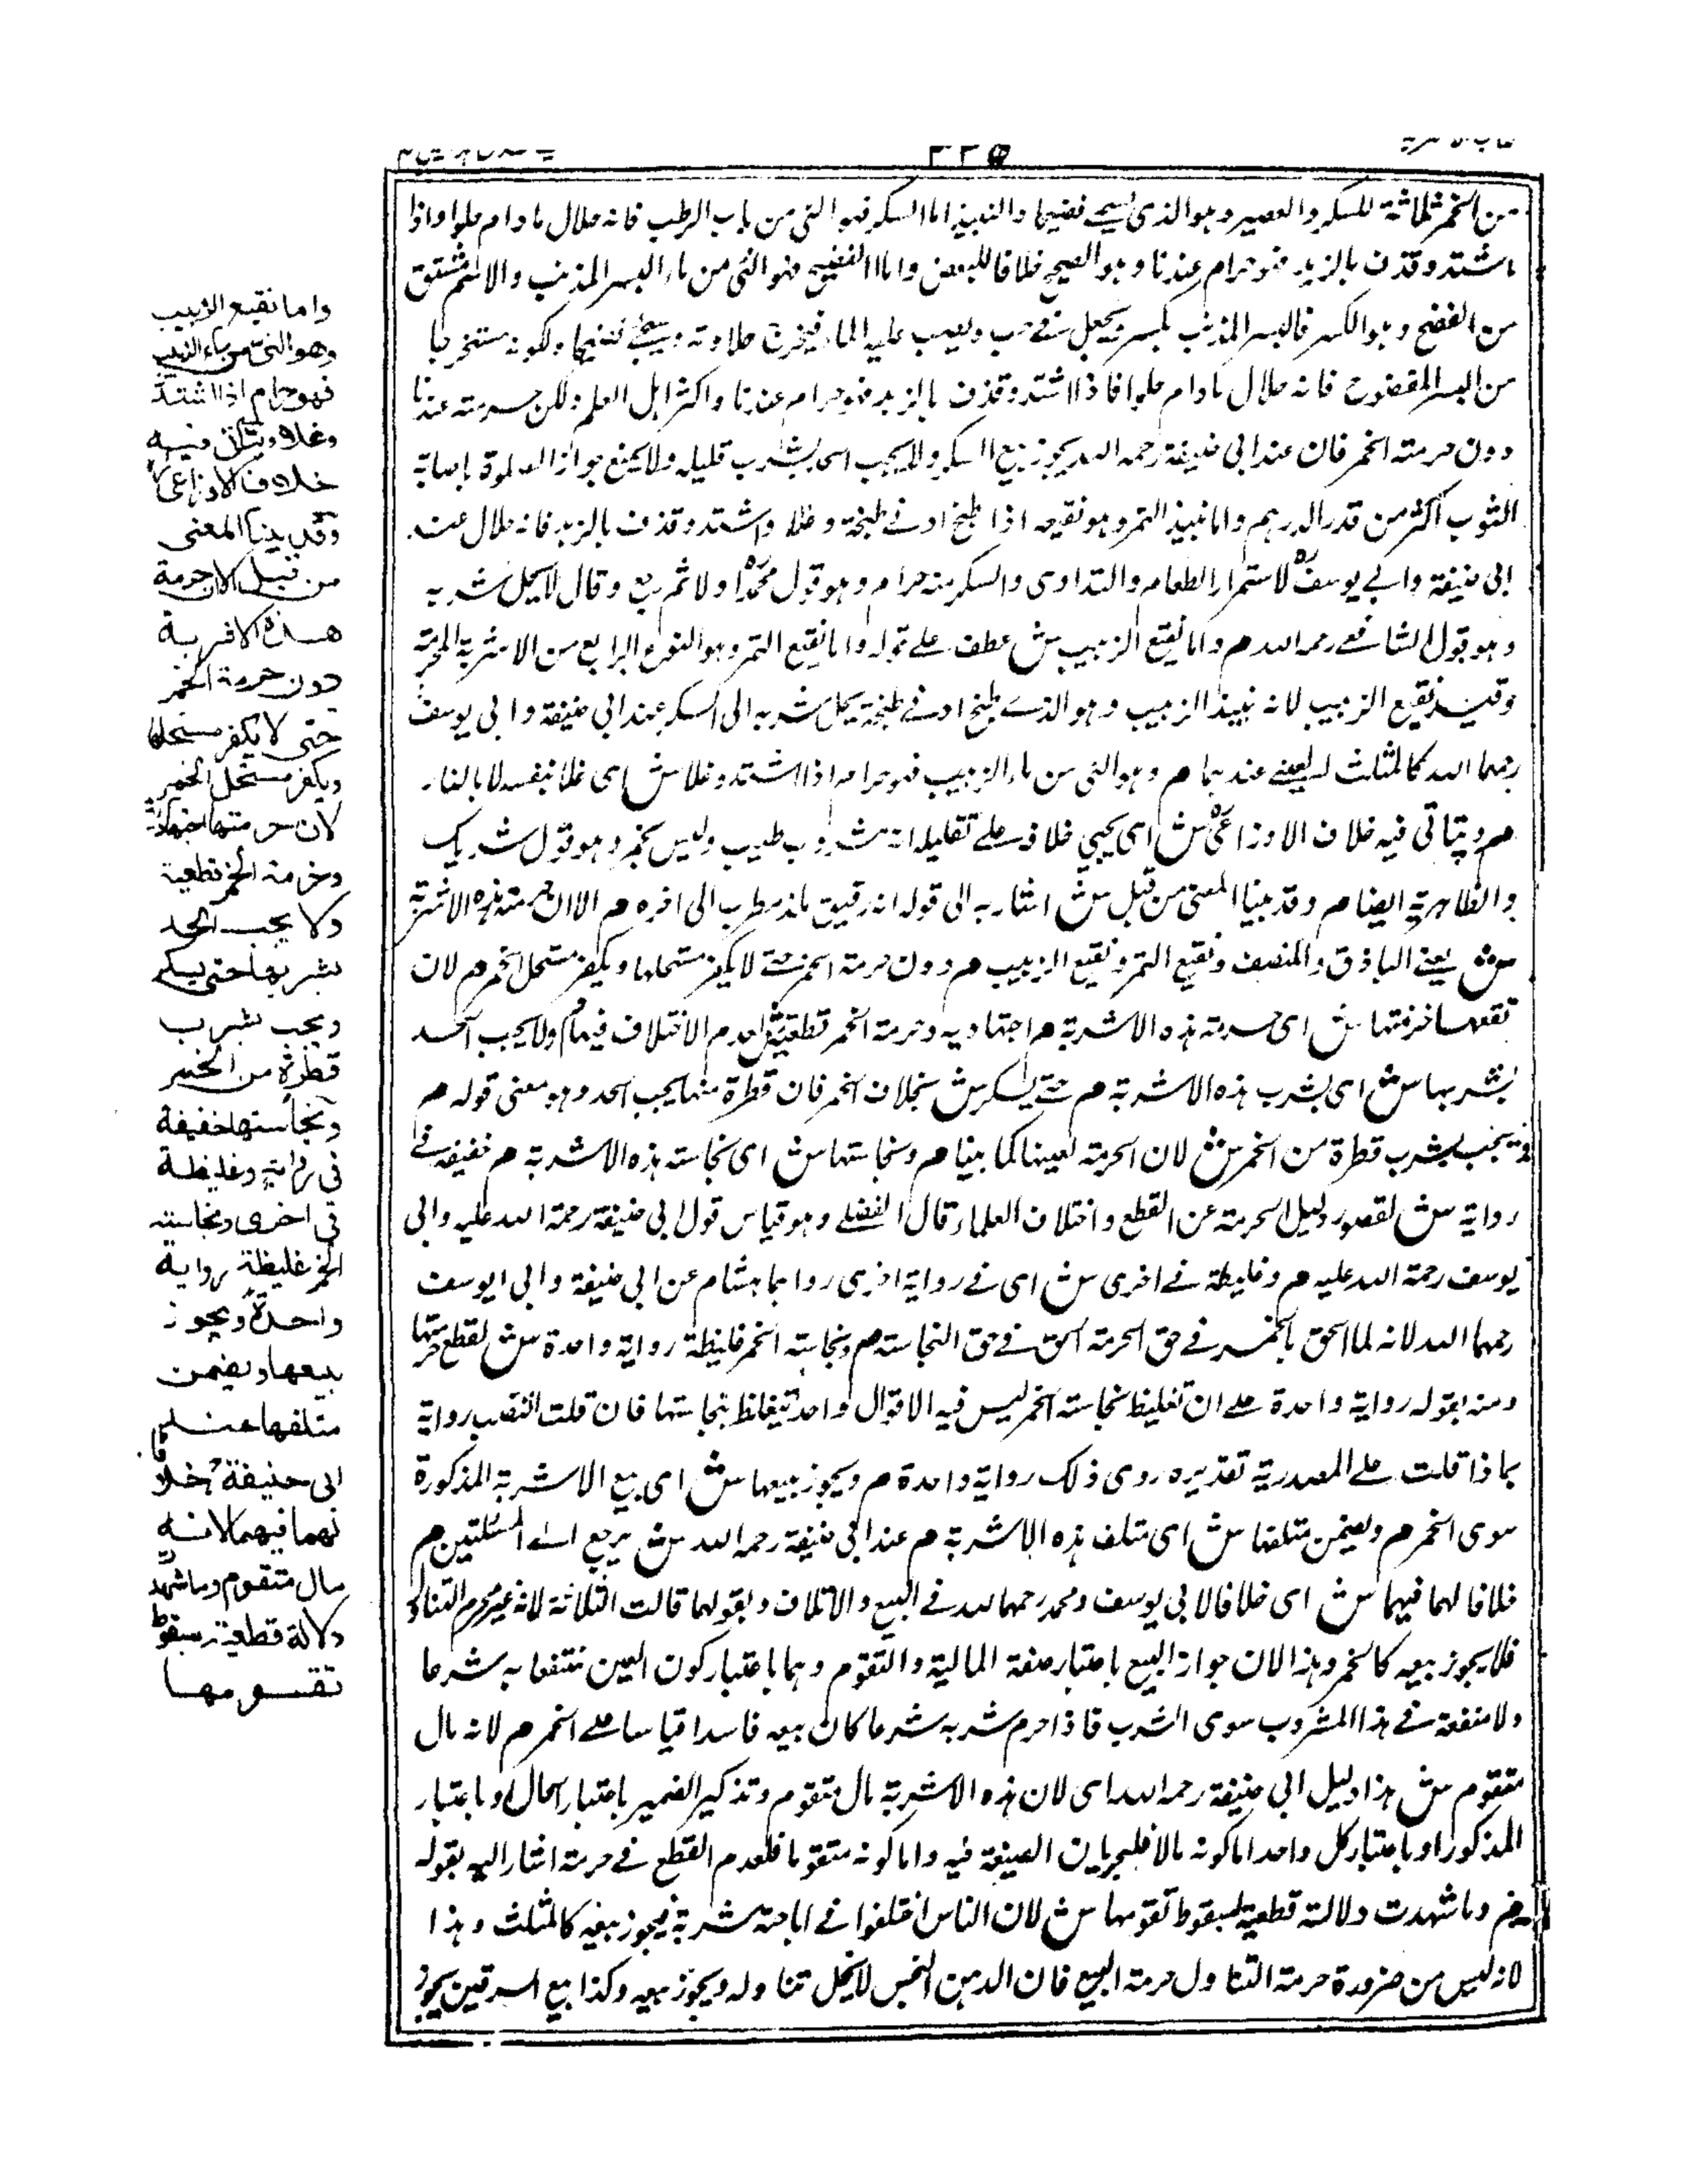 ٣٣٥
من الخمر ثلاثة للسكر والعصير وهو الذي يسمى فضيخا والنبيذ اما السكر فهو النى من باب الرطب فانه حلال ما دام حلوا واذا
اشتد وقذف بالزبد فهو حرام عندنا وهو الصحيح خلافا للبعض واما الفضيخ فهو النى من ماء البسر المذنب والاسم مشتق
من الفضخ وهو الكسر فالبسر المذنب يكسر ويجعل فى حب ويصب عليه الماء فيخرج حلاوته ويسمى فضيخا ولكونه مستخرجا
من البسر المفضوخ فانه حلال ما دام حلوا فاذا اشتد وقذف بالزبد فهو حرام عندنا واكثر اهل العلم ولكن حرمته عندنا
دون حرمته الخمر فان عند ابى حنيفة رحمه الله يجوز بيع السكر ولا يجب الحد بشرب قليله ولا يمنع جواز الصلوة باصابة
الثوب اكثر من قدر الدرهم واما نبيذ التمر وهو نقيعه اذا طبخ ادنى طبخة وغلا واشتد وقذف بالزبد فانه حلال عند
ابى حنيفة وابى يوسف لاستمراء الطعام والتداوى والسكر منه حرام وهو قول محمد اولا ثم رجع وقال لا يحل شربه
وهو قول الشافعى رحمه الله م واما نقيع الزبيب ش عطف على قوله واما نقيع التمر وهو النوع الرابع من الاشربة المحرمة
وقيد بنقيع الزبيب لانه نبيذ الزبيب وهو الذى طبخ ادنى طبخة يحل شربه الى السكر عند ابى حنيفة وابى يوسف
رحمهما الله كالمثلث يعنى عندهما م وهو النى من ماء الزبيب فهو حرام اذا اشتد وغلا ش اى غلا بنفسه لا بالنار
م ويتاتى فيه خلاف الاوزاعى ش اى يجيى خلافه على تعليله انه مشروب طيب وليس بخمر وهو قول شريك
والظاهرية ايضا م وقد بينا المعنى من قبل ش اشار به الى قوله انه رقيق ملذ مطرب الى اخره م الا ان حرمته هذه الاشربة
ش يعنى الباذق والمنصف ونقيع التمر ونقيع الزبيب م دون حرمة الخمر حتى لا يكفر مستحلها ويكفر مستحل الخمر م لان
حرمتها ش اى حرمته هذه الاشربة م اجتهادية وحرمة الخمر قطعية ش لعدم الاختلاف فيها م ولا يجب الحد
بشربها ش اى بشرب هذه الاشربة م حتى يسكر ش بخلاف الخمر فان قطرة منها يجب الحد وهو معنى قوله م
ويجب بشرب قطرة من الخمر ش لان الحرمة لعينها كما بينا م ونجاستها ش اى نجاسته هذه الاشربة م خفيفة فى
رواية ش لقصور دليل الحرمة عن القطع واختلاف العلماء قال الفضلى وهو قياس قول ابى حنيفة رحمة الله عليه وابى
يوسف رحمة الله عليه م وغليظة فى اخرى ش اى فى رواية اخرى رواها هشام عن ابى حنيفة وابى يوسف
رحمهما الله لانه لما الحق بالخمر فى حق الحرمة الحق فى حق النجاسة م ونجاسته الخمر غليظة رواية واحدة ش لقطع حرمتها
ومنه بقوله رواية واحدة على ان تغليظ نجاسته الخمر ليس فيه الا قول واحد تغليظ بنجاستها فان قلت انتصب رواية
بماذا قلت على المصدرية تقديره روى ذلك رواية واحدة م ويجوز بيعها ش اى بيع الاشربة المذكورة
سوى الخمر م ويضمن متلفها ش اى متلف هذه الاشربة م عند ابى حنيفة رحمه الله ش يرجع الى المسئلتين م
خلافا لهما فيهما ش اى خلافا لابى يوسف ومحمد رحمهما الله فى البيع والاتلاف وبقولهما قالت الثلاثة لانه غير محرم التناول
فلا يجوز بيعه كالخمر وهذا لان جواز البيع باعتبار صفة المالية والتقوم وهما باعتبار كون العين منتفعا به شرعا
ولا منفعة فى هذا المشروب سوى الشرب فاذا حرم شربه شرعا كان بيعه فاسدا قياسا على الخمر م لانه مال
متقوم ش هذا دليل ابى حنيفة رحمه الله اى لان هذه الاشربة مال متقوم وتذكير الضمير باعتبار الحال او باعتبار
المذكور او باعتبار كل واحد اما كونه مالا فلجريان الصيغة فيه واما كونه متقوما فلعدم القطع فى حرمته اشار اليه بقوله
م وما شهدت دلالة قطعية بسقوط تقومها ش لان الناس اختلفوا فى اباحته شربة فيجوز بيعه كالمثلث وهذا
لانه ليس من ضرورة حرمة التناول حرمة البيع فان الدهن النجس لا يحل تناوله ويجوز بيعه وكذا بيع السرقين يجوز
واما نقيع الزبيب
وهو النى من ماء الزبيب
فهو حرام اذا اشتد
وغلا ويتاتى فيه
خلاف الاوزاعى
وقد بينا المعنى
من قبل الا ان حرمة
هذه الاشربة
دون حرمة الخمر
حتى لا يكفر مستحلها
ويكفر مستحل الخمر
لان حرمتها اجتهادية
وحرمة الخمر قطعية
ولا يجب الحد
بشربها حتى يسكر
ويجب بشرب
قطرة من الخمر
ونجاستها خفيفة
فى رواية وغليظة
فى اخرى ونجاسة
الخمر غليظة رواية
واحدة ويجوز
بيعها ويضمن
متلفها عند
ابى حنيفة خلافا
لهما فيهما لانه
مال متقوم وما شهدت
دلالة قطعية بسقوط
تقومها